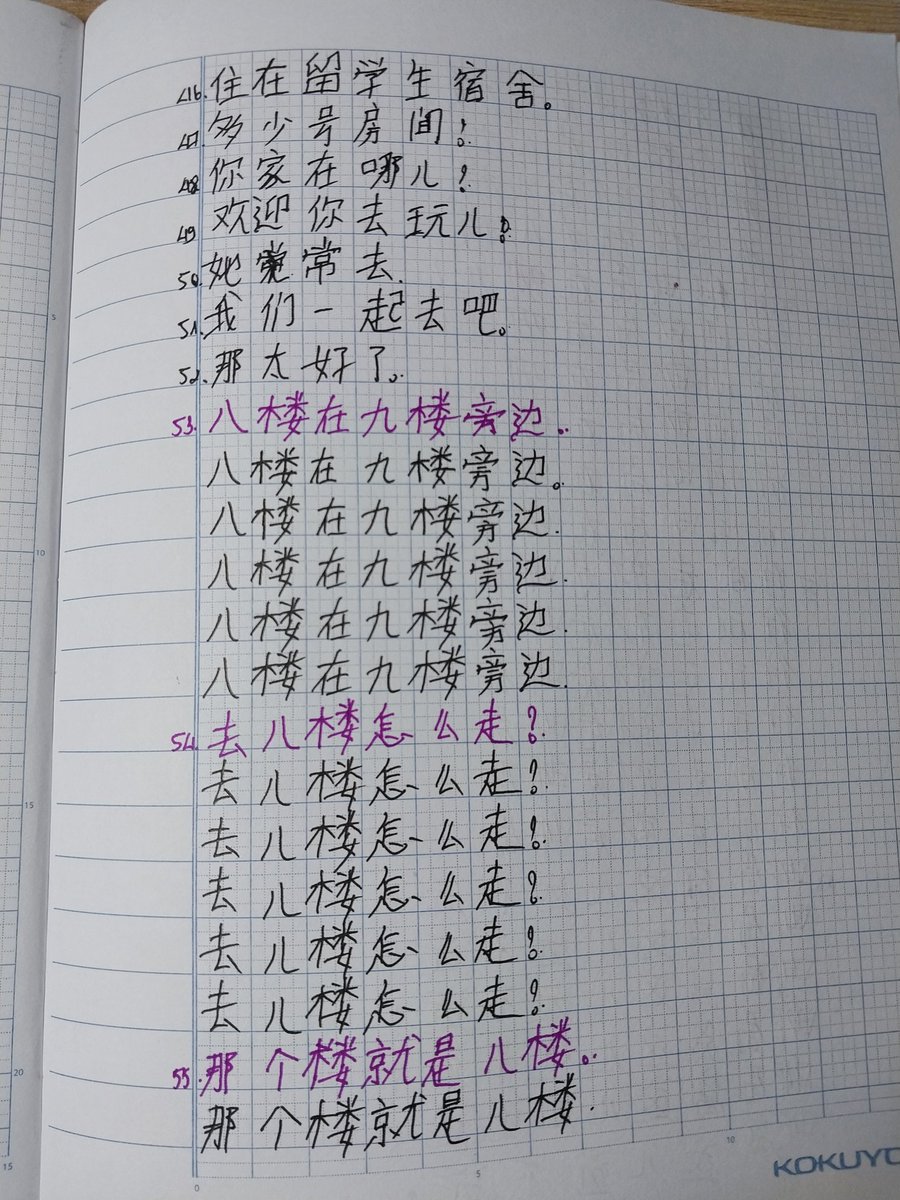 46. 住在留学生宿舍。
47. 多少号房间？
48. 你家在哪儿？
49. 欢迎你去玩儿！
50. 她常常去.
51. 我们一起去吧。
52. 那太好了。
53. 八楼在九楼旁边。
八楼在九楼旁边。
八楼在九楼旁边.
八楼在九楼旁边.
八楼在九楼旁边.
八楼在九楼旁边.
54. 去儿楼怎么走？
去儿楼怎么走？
去儿楼怎么走？
去儿楼怎么走？
去儿楼怎么走？
去儿楼怎么走？
55. 那个楼就是儿楼。
那个楼就是儿楼.
KOKUYO